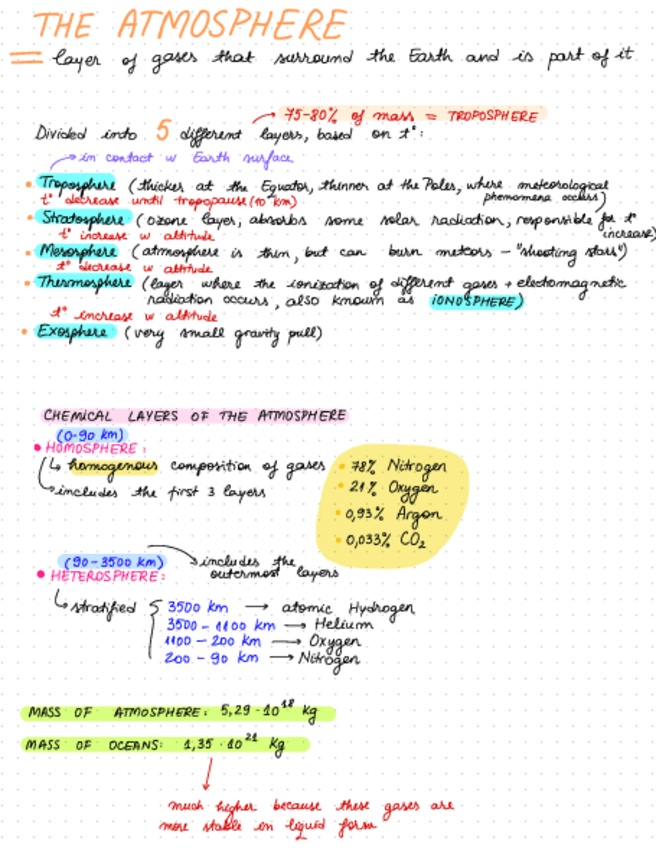 THE ATMOSPHERE
= layer of gases that surround the Earth and is part of it
75-80% of mass = TROPOSPHERE
Divided into 5 different layers, based on t°:
in contact w Earth surface
• Troposphere (thicker at the Equator, thinner at the Poles, where meteorological
phenomena occurs)
t° decrease until tropopause (10 km)
• Stratosphere (ozone layer, absorbs some solar radiation, responsible for t°
increase)
t° increase w altitude
• Mesosphere (atmosphere is thin, but can burn meteors - "shooting stars")
t° decrease w altitude
• Thermosphere (layer where the ionization of different gases + electromagnetic
radiation occurs, also known as IONOSPHERE)
t° increase w altitude
• Exosphere (very small gravity pull)
CHEMICAL LAYERS OF THE ATMOSPHERE
(0-90 km)
• HOMOSPHERE:
↳ homogenous composition of gases
↳ includes the first 3 layers
• 78% Nitrogen
• 21% Oxygen
• 0,93% Argon
• 0,033% CO₂
(90-3500 km)
• HETEROSPHERE:
→ includes the
outermost layers
↳ stratified { 3500 km → atomic Hydrogen
3500 - 1100 km → Helium
1100 - 200 km → Oxygen
200 - 90 km → Nitrogen
MASS OF ATMOSPHERE: 5,29 · 10¹⁸ kg
MASS OF OCEANS: 1,35 · 10²¹ kg
much higher because these gases are
more stable in liquid form